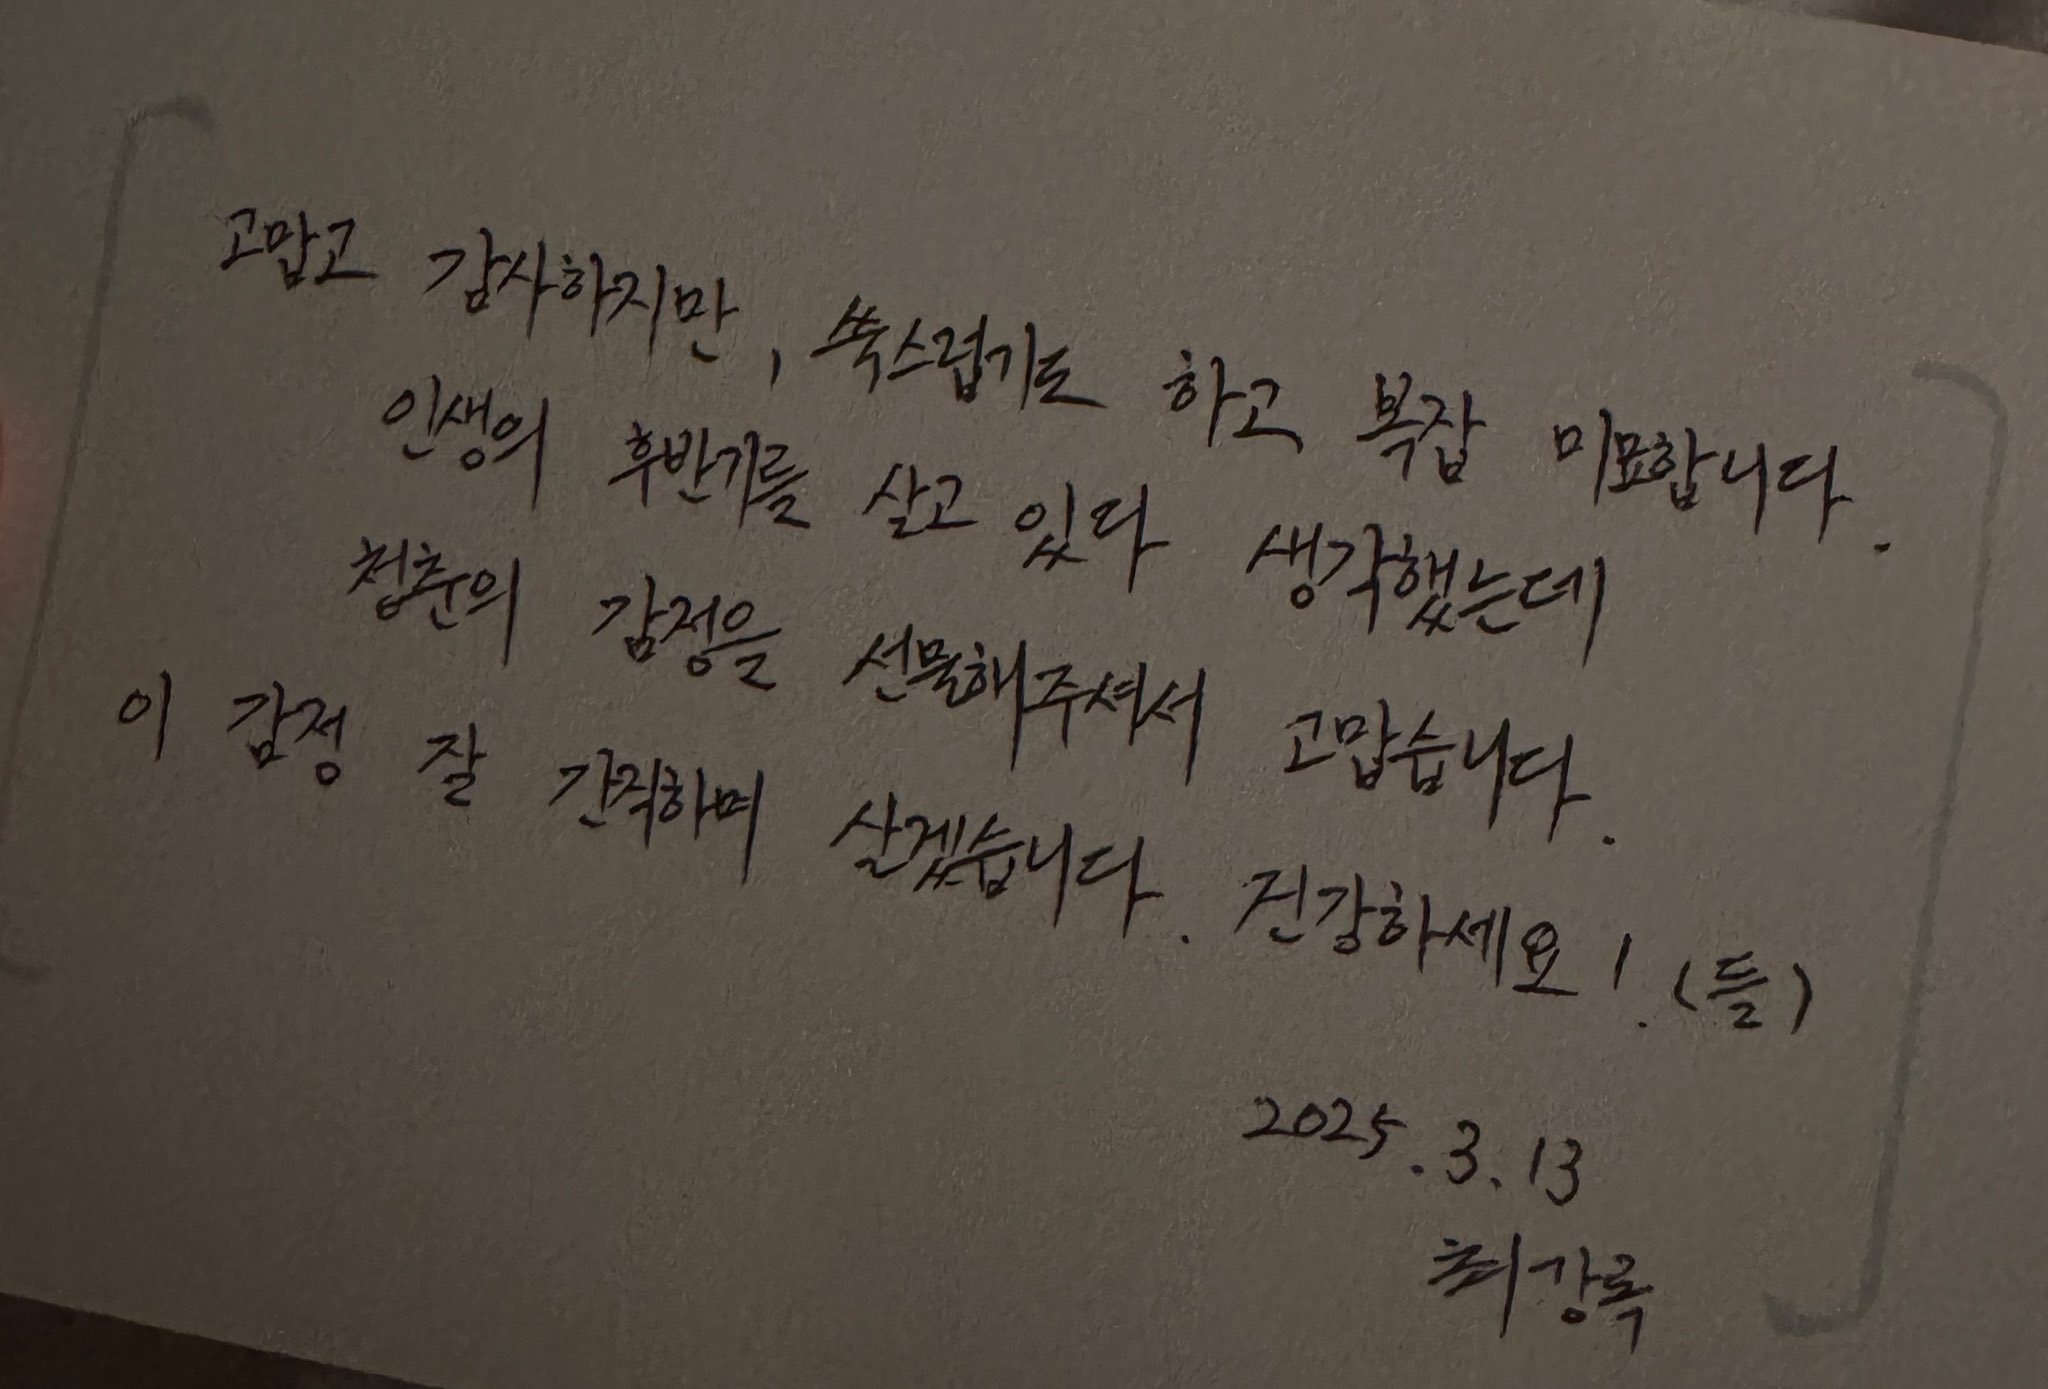 고맙고 감사하지만, 쑥스럽기도 하고 복잡 미묘합니다.
인생의 후반기를 살고 있다 생각했는데
청춘의 감정을 선물해주셔서 고맙습니다.
이 감정 잘 간직하며 살겠습니다. 건강하세요!.(들)
2025.3.13
최강록